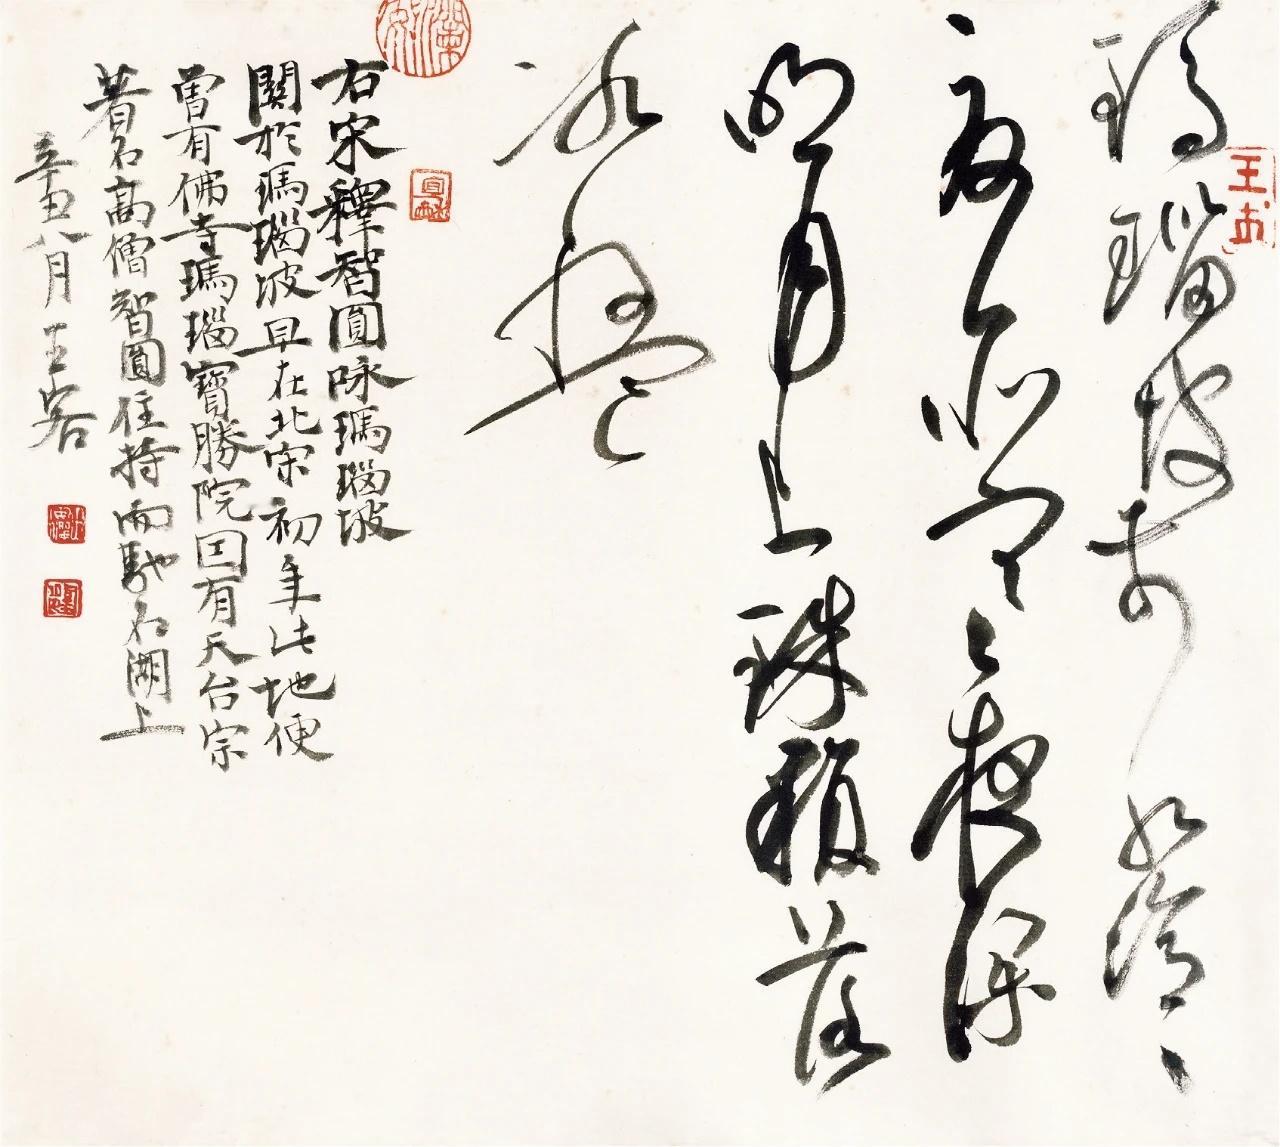 瑪瑙坡前水泠泠
寒夜深
明月上珠顆落
冰盤
右宋釋智圓咏瑪瑙坡
關於瑪瑙坡早在北宋初年此地便
曾有佛寺瑪瑙寶勝院因有天台宗
著名高僧智圓住持而馳名湖上
辛丑八月王客